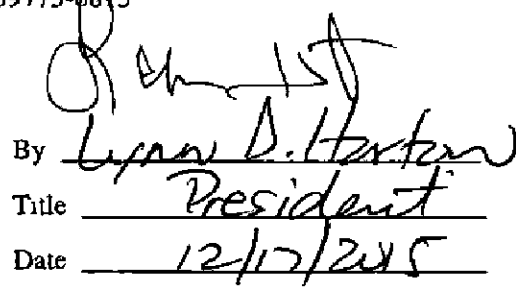 By Lynn D. Horton
Title President
Date 12/17/2015